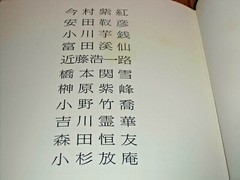 今村紫紅
安田靫彦
小川芋銭
富田溪仙
近藤浩一路
橋本関雪
榊原紫峰
小野竹喬
吉川霊華
森田恒友
小杉放庵